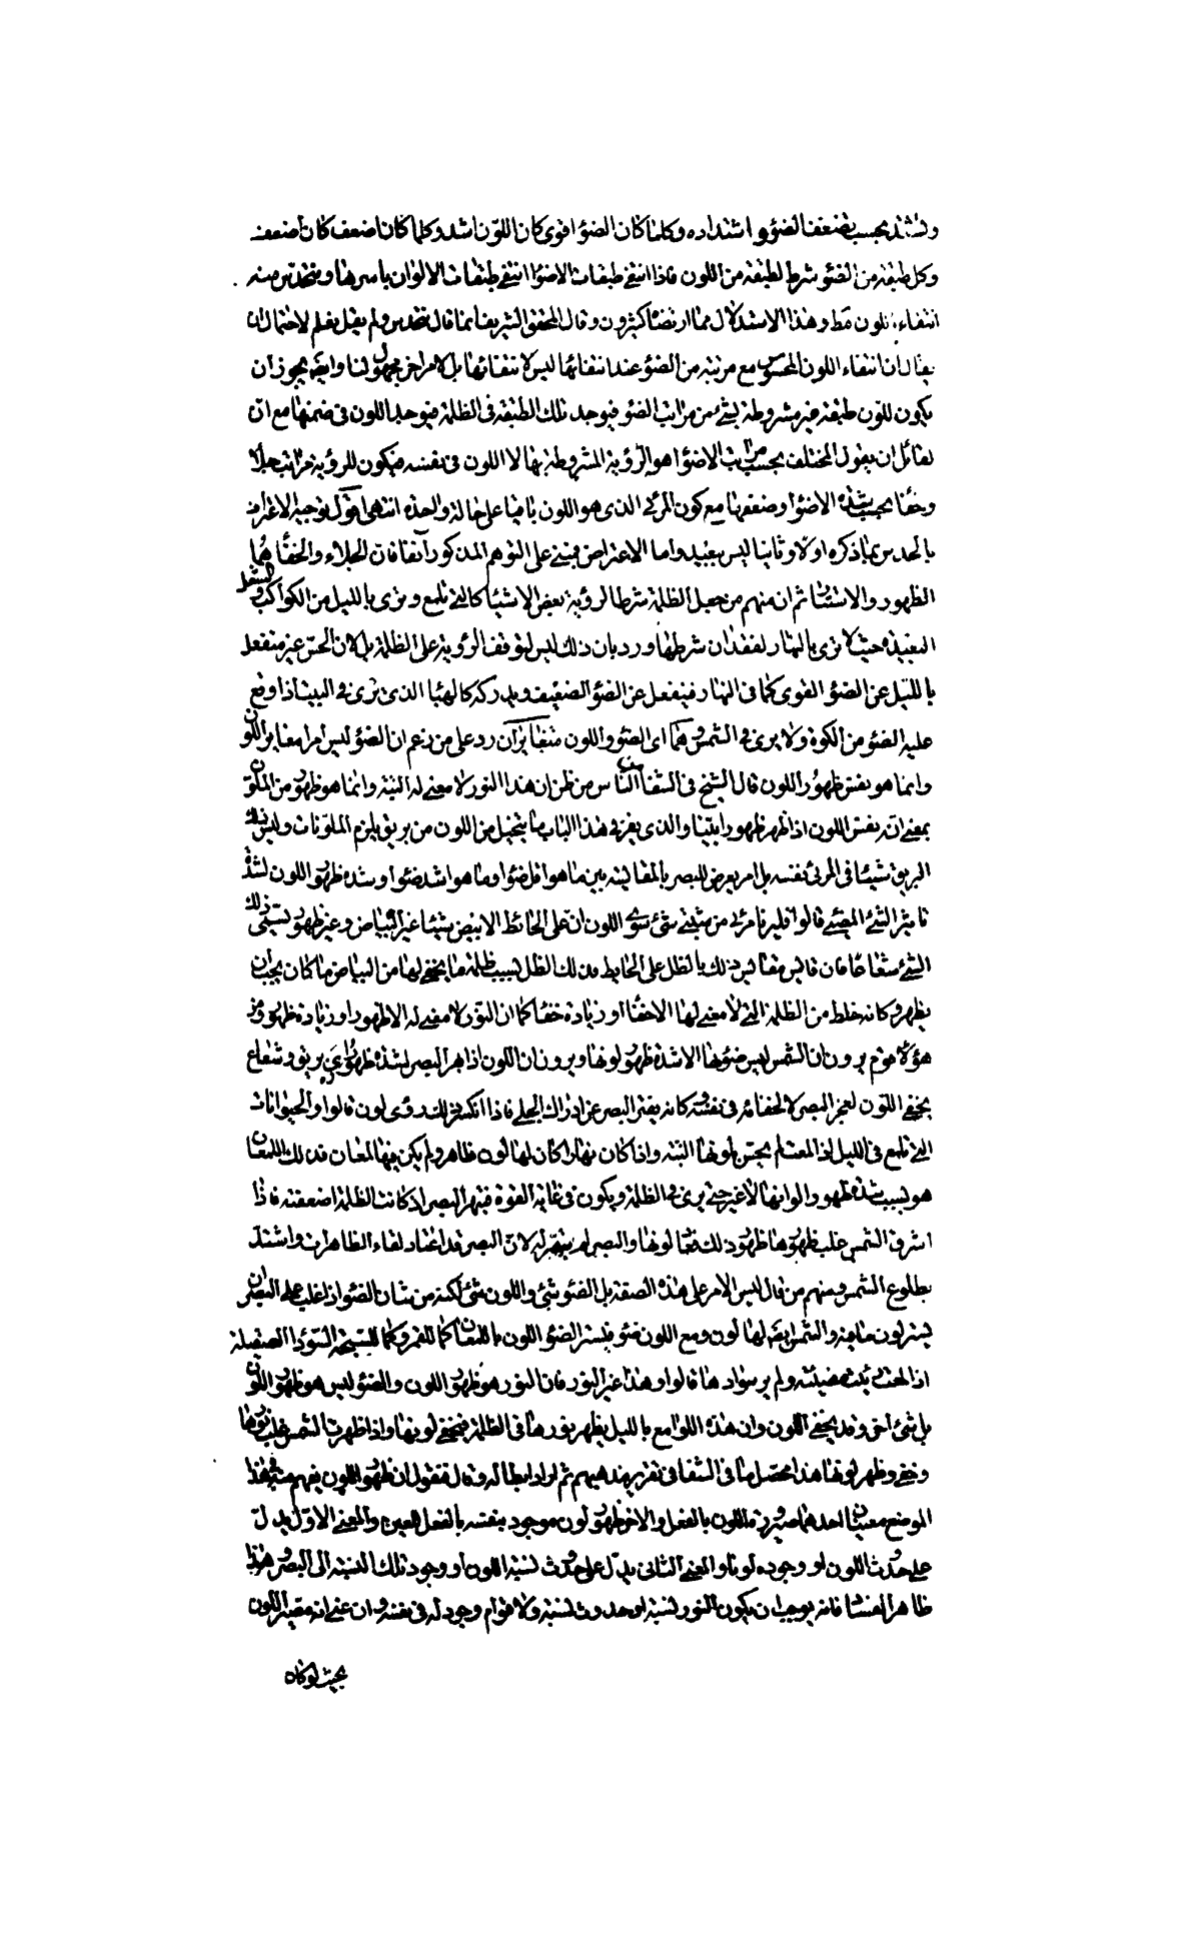 وتشتد بحسب ضعف الضوء واشتداده وكلما كان الضوء اقوى كان اللون اشد وكلما كان اضعف كان اضعف
وكل طبقة من الضوء شرط لطبقة من اللون فاذا انتفى طبقات الاضواء انتفى طبقات الالوان باسرها ويتحدس منه
انتفاء اللون مط وهذا الاستدلال مما ارتضاه كثيرون وقال المحقق الشريف انما قال يتحدس ولم يقل يعلم لاحتمال ان
يقال ان انتفاء اللون المحسوس مع مرتبة من الضوء عند انتفائها ليس لانتفائها بل لامر اخر مجهول لنا وايضا يجوز ان
يكون للون طبقة غير مشروطة بشئ من مراتب الضوء فيوجد تلك الطبقة فى الظلمة فيوجد اللون فى ضمنها مع ان
لقائل ان يقول المختلف بحسب مراتب الاضواء هو الرؤية المشروطة بها لا اللون فى نفسه فيكون للرؤية مراتب جلاء
وخفاء بحسب شدة الاضواء وضعفها مع كون المرئى الذى هو اللون باقيا على حالة واحدة انتهى اقول توجيه الاعتراض
بالحدس بما ذكره اولا وثانيا ليس ببعيد واما الاعتراض فمبنى على التوهم المذكور آنفا فان الجلاء والخفاء هما
الظهور والاستتار ثم ان منهم من جعل الظلمة شرطا لرؤية بعض الاشياء كالتى تلمع وترى بالليل من الكواكب والشعل
البعيدة حيث لا ترى بالنهار لفقدان شرطها ورد بان ذلك ليس لتوقف الرؤية على الظلمة بل لان الحس غير منفعل
بالليل عن الضوء القوى كما فى النهار فينفعل عن الضوء الضعيف ويدركه كالهباء الذى ترى فى البيت اذا وقع
عليه الضوء من الكوة ولا يرى فى الشمس وهما اى الضوء واللون متغايران رد على من زعم ان الضوء ليس امرا مغايرا للون
وانما هو نفس ظهور اللون قال الشيخ فى الشفاء من الناس من ظن ان هذا النور لا معنى له البتة وانما هو ظهور من الملون
بمعنى انه نفس اللون اذا ظهر ظهورا بينا والذى يغر فى هذا الباب ما يتخيل من اللون من بريق يلزم الملونات وليس ذلك
البريق شيئا فى المرئى نفسه بل امر يعرض للبصر بالمقايسة بين ما هو اقل ضوءا وما هو اشد ضوءا وشدة ظهور اللون لشدة
تاثير الشئ المضئ قالوا فليرنا مرئى من شئ سوى اللون ان على الحائط الابيض شيئا غير البياض وغير ظهور يسمى ذلك
الشئ شعاعا فان قايس مقايس ذلك بالظل على الحايط فذلك الظل بسبب ظلمة ما يخفى لها من البياض ما كان يجب ان
يظهر وكانه خلط من الظلمة التى لا معنى لها الا خفاء او زيادة خفاء كما ان النور لا معنى له الا ظهور او زيادة ظهور ومن
هؤلاء قوم يرون ان الشمس ليس ضوءها الا شدة ظهور لونها ويرون ان اللون اذا بهر البصر لشدة ظهوره رأى بريق وشعاع
يخفى اللون لعجز البصر لا لخفائه فى نفسه وكانه يفتر البصر عن ادراك الجلى فاذا انكسر ذلك رؤى لون قالوا والحيوانات
التى تلمع فى الليل اذا لمعت لم يحس بلونها البتة واذا كان نهارا كان لها لون ظاهر ولم يكن فيها لمعان فذلك اللمعان
هو بسبب شدة ظهور الوانها لا غير حتى يرى فى الظلمة ويكون فى غاية القوة فيبهر البصر اذ كانت الظلمة اضعفته فاذا
اشرق الشمس غلب ظهورها ظهور ذلك فعاد لونها والبصر لم ينبهر له لان البصر قد اعتاد لقاء الظاهرات واشتد
بطلوع الشمس ومنهم من قال ليس الامر على هذه الصفة بل الضوء شئ واللون شئ لكنه من شان الضوء اذا غلب على البصر ان
يستر لون ما فيه والشمس ايضا لها لون ومع اللون ضوء فيستر الضوء اللون باللمعان كما للقمر وكما للسبجة السوداء الصقيلة
اذا لمعت رئيت مضيئة ولم ير سوادها قالوا وهذا غير النور فان النور هو ظهور اللون والضوء ليس هو ظهور اللون
بل شئ اخر وقد يخفى اللون وان هذه اللوامع بالليل يظهر نورها فى الظلمة فيخفى لونها واذا ظهرت الشمس غلب نورها
وخفى وظهر لونها هذا محصل ما فى الشفاء فى تقرير مذهبهم ثم اراد ابطاله وقال فنقول ان ظهور اللون يفهم منه فى هذا
الموضع معنيان احدهما صيرورة اللون بالفعل والاخر ظهور لون موجود بنفسه بالفعل للعين والمعنى الاول يدل
على حدوث اللون او وجوده لونا والمعنى الثانى يدل على حدوث نسبة اللون او وجود تلك النسبة الى البصر وهذا
ظاهر الفساد فانه يوجب ان يكون النور نسبة او حدوث نسبة ولا قوام وجود له فى نفسه وان عنى انه مصير اللون
بحيث لو كان